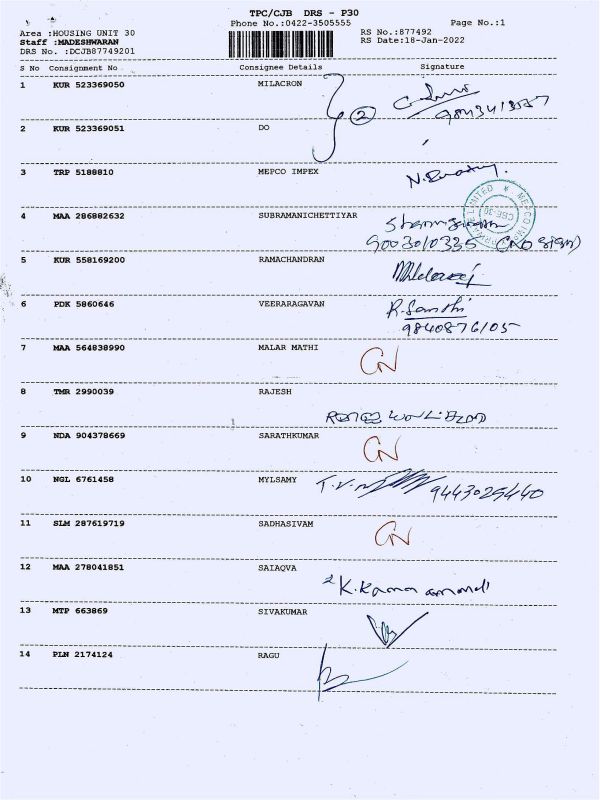 TPC/CJB DRS - P30
Phone No.:0422-3505555
Page No.:1
Area :HOUSING UNIT 30
RS No.:877492
Staff :MADESHWARAN
RS Date:18-Jan-2022
DRS No. :DCJB87749201
S No Consignment No Consignee Details Signature
1 KUR 523369050 MILACRON
2
2 KUR 523369051 DO
3 TRP 5188810 MEPCO IMPEX
4 MAA 286882632 SUBRAMANICHETTIYAR
9003010335
5 KUR 558169200 RAMACHANDRAN
6 PDK 5860646 VEERARAGAVAN R. Santhi
9840876105
7 MAA 564838990 MALAR MATHI CN
8 TMR 2990039 RAJESH
9 NDA 904378669 SARATHKUMAR CN
10 NGL 6761458 MYLSAMY 9443025440
11 SLM 287619719 SADHASIVAM CN
12 MAA 278041851 SAIAQVA
13 MTP 663869 SIVAKUMAR
14 PLN 2174124 RAGU